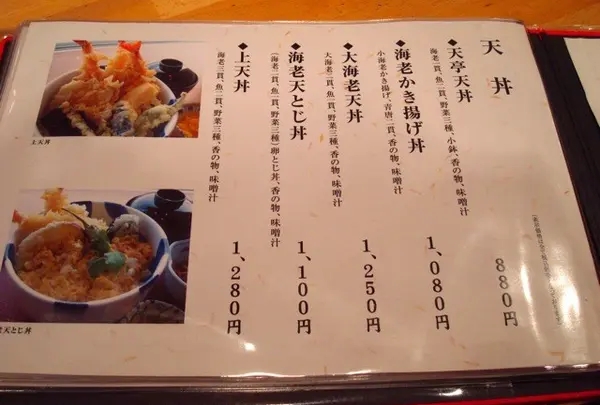 天丼
◆天亭天丼
海老二貫、魚一貫、野菜三種、小鉢、香の物、味噌汁
880円
◆海老かき揚げ丼
小海老かき揚げ、青唐二貫、香の物、味噌汁
1,080円
◆大海老天丼
大海老二貫、魚一貫、野菜三種、香の物、味噌汁
1,250円
◆海老天とじ丼
(海老二貫、魚一貫、野菜三種)卵とじ丼、香の物、味噌汁
1,100円
◆上天丼
海老三貫、魚二貫、野菜三種、香の物、味噌汁
1,280円
上天丼
天とじ丼